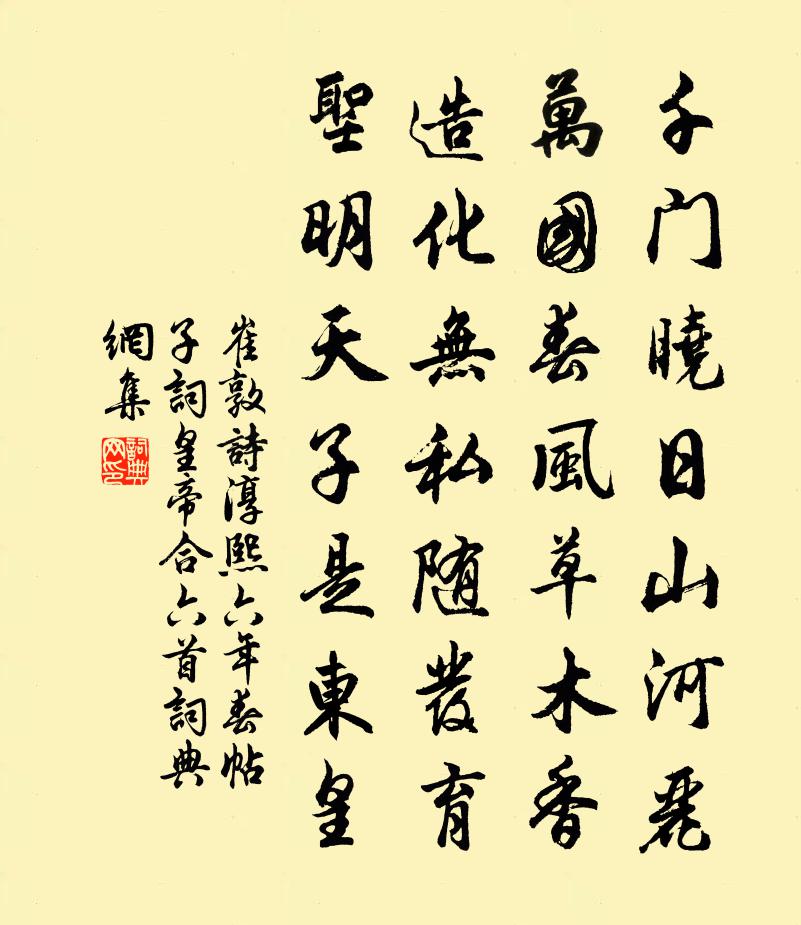 千門曉日山河麗
萬國春風草木香
造化無私随發育
聖明天子是東皇
崔敦詩淳熙六年春帖
子詞皇帝合六首詞典
網集
詞典
网印